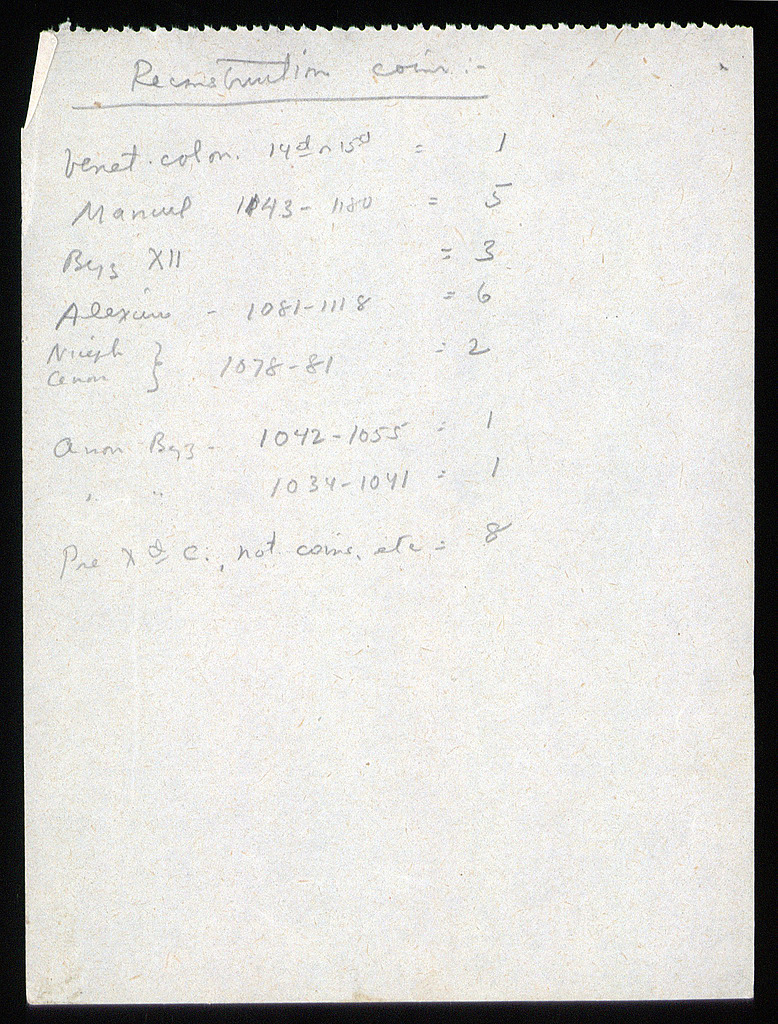 Reconstruction coins :-
Venet. colon. 14th or 15th = 1
Manuel 1143 - 1180 = 5
Byz XII = 3
Alexius - 1081-1118 = 6
Niceph } 1078-81 = 2
anon Byz - 1042-1055 = 1
" " 1034-1041 = 1
Pre X C., not coins, etc = 8